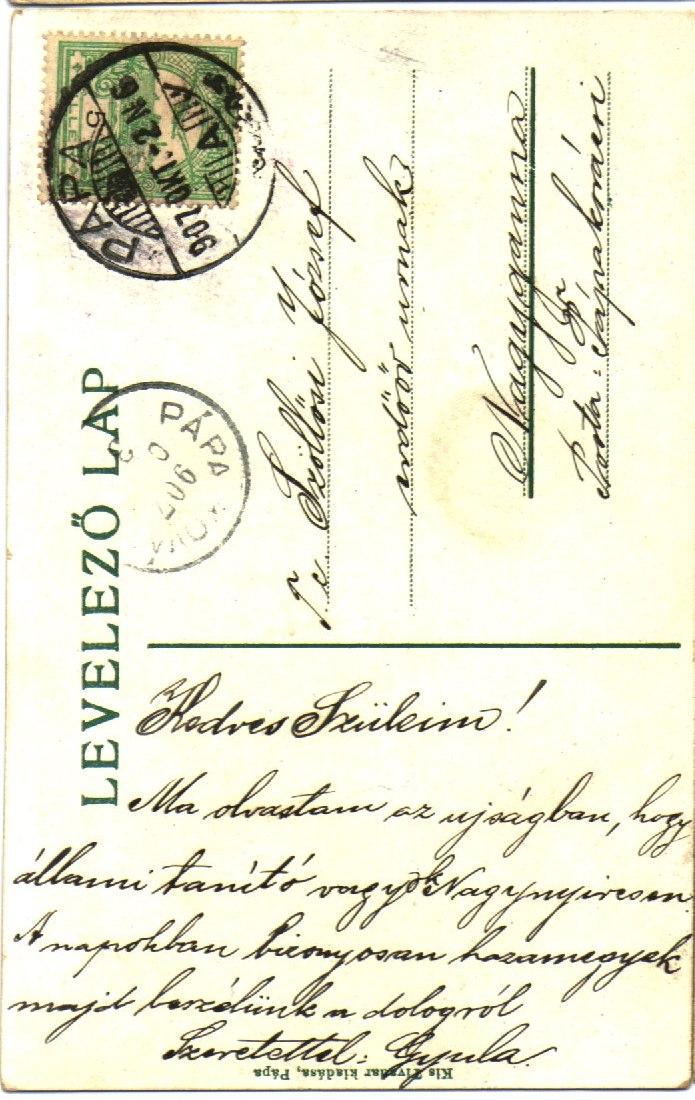 LEVELEZŐ LAP
PÁPA
907 OKT. -2 N 6
A
5
PÁPA
907
T. c. Szöllősi József
erdőőr urnak
Nagyganna
Posta: Pápakovácsi
Kedves Szüleim!
Ma olvastam az ujságban, hogy
állami tanító vagyok Nagynyiresen.
A napokban bizonyosan hazamegyek
majd beszélünk a dologról
Szeretettel: Gyula.
Kis Tivadar kiadása, Pápa